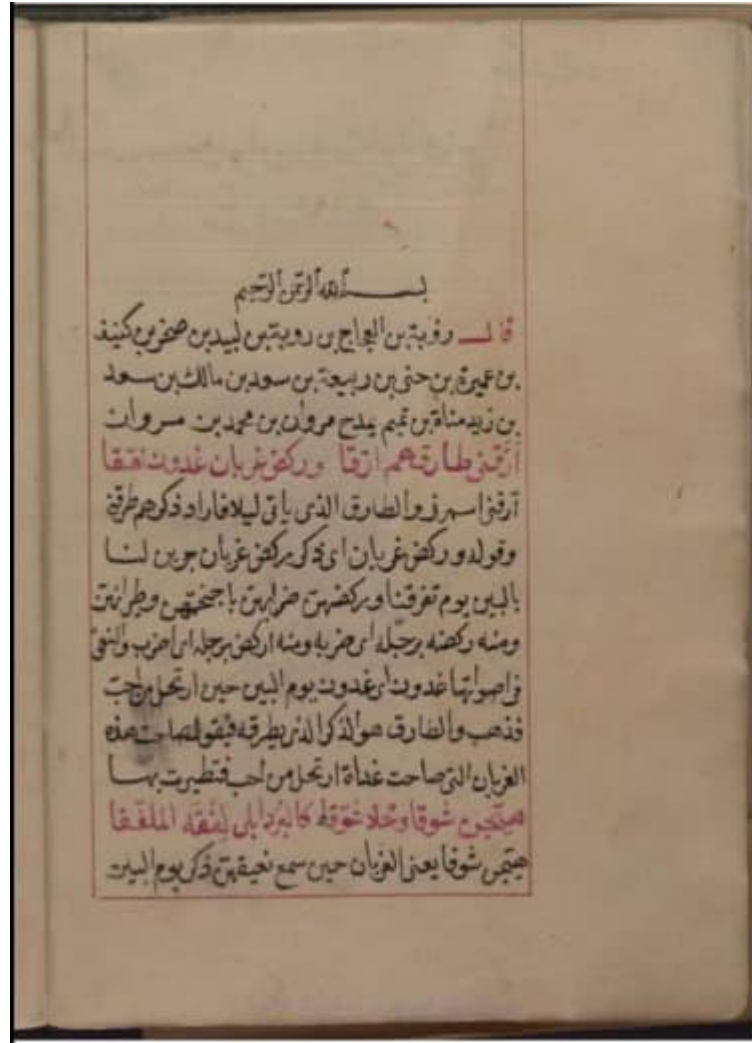 بسم الله الرحمن الرحيم
قال رؤبة بن العجاج بن روبة بن لبيد بن صخر بن كنيف
بن عميرة بن حنى بن ربيعة بن سعد بن مالك بن سعد
بن زيد مناة بن تميم يمدح مروان بن محمد بن مروان
أرقنى طارق هم ارقا وركض غربان غدون نغقا
أرقنى اسهرنى والطارق الذى ياتى ليلا فاراد ذكر هم طرقه
وقوله وركض غربان اى ذكر ركض غربان جرين لنا
بالبين يوم تفرقنا وركضهن ضرابهن باجنحتهن وطيرانهن
ومنه ركضه برجله اى ضربه ومنه اركض برجلك اى اضرب والنغق
فى اصواتها غدون اى غدون يوم البين حين ارتحل من احب
فذهب والطارق هو الذكر الذى يطرقه فيقول صاحت هذه
الغربان التى صاحت غداة ارتحل من احب فتطيرت بها
هيجن شوقا وخلا شوقه كالبرد ابلى لفقه الملفقا
هيجن شوقا يعنى الغربان حين سمع نعيقهن ذكر يوم البين